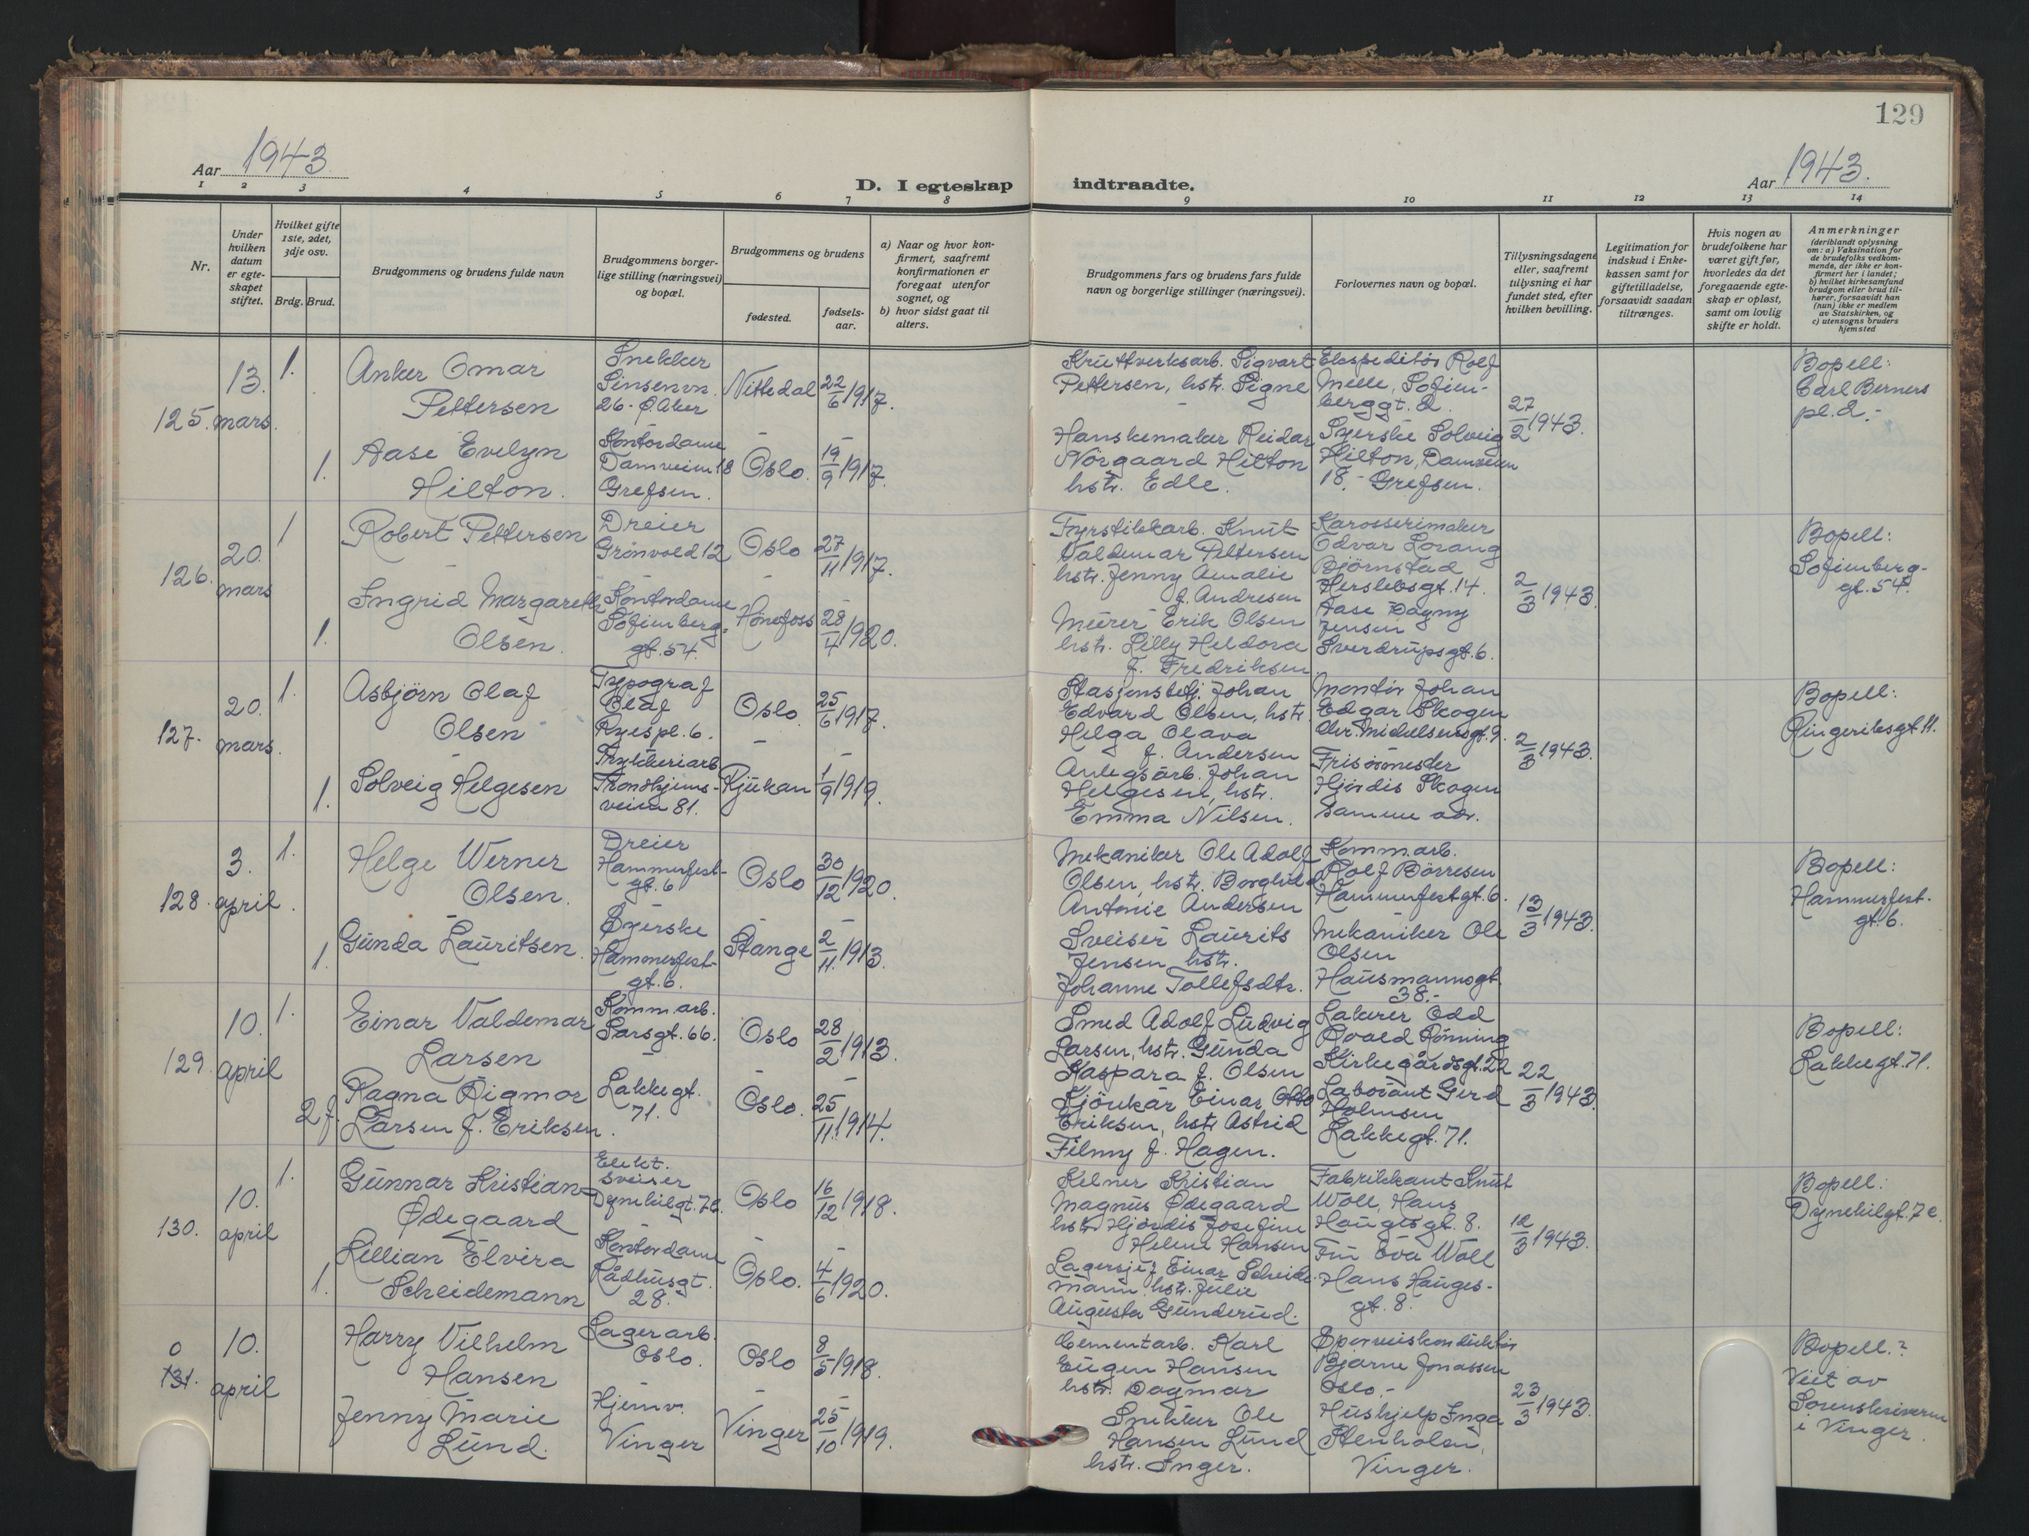 129
Aar 1943
D. I egteskap indtraadte.
Aar 1943.
1 2 3 4 5 6 7 8 9 10 11 12 13 14
Nr.
Under hvilken datum er egteskapet stiftet.
Hvilket gifte 1ste, 2det, 3dje osv.
Brdg. Brud.
Brudgommens og brudens fulde navn
Brudgommens borgerlige stilling (næringsvei) og bopæl.
Brudgommens og brudens
fødested.
fødselsaar.
a) Naar og hvor konfirmert, saafremt konfirmationen er foregaat utenfor sognet, og
b) hvor sidst gaat til alters.
Brudgommens fars og brudens fars fulde navn og borgerlige stillinger (næringsvei).
Forlovernes navn og bopæl.
Tillysningsdagene eller, saafremt tillysning ei har fundet sted, efter hvilken bevilling.
Legitimation for indskud i Enkekassen samt for giftetilladelse, forsaavidt saadan tiltrænges.
Hvis nogen av brudefolkene har været gift før, hvorledes da det foregaaende egteskap er opløst, samt om lovlig skifte er holdt.
Anmerkninger
(deriblandt oplysning om: a) Vaksination for de brudefolks vedkommende, der ikke er konfirmert her i landet; b) hvilket kirkesamfund brudgom eller brud tilhører, forsaavidt han (hun) ikke er medlem av Statskirken, og c) utensogns bruders hjemsted
125. 13. mars
1. Anker Omar Pettersen
Snekker Sinsenvn. 26 - Ø. Aker
Nittedal 22/6 1917.
Kruttverksarb. Sigvart Pettersen, hstr. Signe
Ekspeditør Rolf Melle, Sofienberggt. 2.
27/2 1943.
Bopell: Carl Berners pl. 2.-
1. Aase Evelyn Hilton.
Kontordame Damveien 18 Grefsen.
Oslo. 19/9 1917.
Hanskemaker Reidar Nørgaard Hilton hstr. Edle.
Syerske Solveig Hilton, Damveien 18.- Grefsen.
126. 20. mars
1 Robert Pettersen
Dreier Grønvold 12
Oslo 27/11 1917.
Fyrstikkarb. Knut Valdemar Pettersen hstr. Jenny Amalie f. Andresen
Karosserimaker Edvar Lorang Bjørnstad Herslebsgt. 14.
2/3 1943.
Bopell: Sofienberggt. 54.
1. Ingrid Margareth Olsen.
Kontordame Sofienberggt. 54.
Hønefoss 28/4 1920.
Murer Erik Olsen hstr. Lilly Heldora f. Fredriksen
Aase Dagny Jensen Sverdrupsgt. 6.
127. 20. mars.
1. Asbjørn Olaf Olsen
Typograf Olaf Ryes pl. 6.
Oslo. 25/6 1917.
Stasjonsbetj. Johan Edvard Olsen, hstr. Helga Olava f. Andersen
Montør Johan Edgar Skogen Chr. Michelsensgt. 9.
2/3 1943.
Bopell: Ringeriksgt. 11.
1. Solveig Helgesen
Trykkeriarb. Trondhjemsveien 81.
Rjukan 1/9 1919.
Anlegsarb. Johan Helgesen, hstr. Emma Nilsen.
Frisørmester Hjørdis Skogen samme adr.
128. 3. april.
1. Helge Werner Olsen.
Dreier Hammerfestgt. 6
Oslo 30/12 1920.
Mekaniker Ole Adolf Olsen, hstr. Borghild Antonie Andersen
Komm.arb. Rolf Børresen Hammerfestgt. 6.
13/3 1943.
Bopell: Hammerfestgt. 6.
1. Gunda Lauritsen.
Syerske Hammerfestgt. 6.
Stange 2/11. 1913.
Sveiser Laurits Jensen hstr. Johanne Tollefsdtr.
Mekaniker Ole Olsen Hausmannsgt. 38.-
129. 10. april
1. Einar Valdemar Larsen
Komm.arb. Sarsgt. 66.
Oslo 28/2 1913.
Smed Adolf Ludvig Larsen, hstr. Gunda Kaspara f. Olsen
Lakerer Odd Osvald Rønning Kirkegårdsgt. 22
22/3 1943.
Bopell: Lakkegt. 71.
2 f. Ragna Digmor Larsen f. Eriksen.
Lakkegt. 71.
Oslo. 25/11. 1914.
Kjørekar Einar Otto Eriksen, hstr. Astrid Filmy f. Hagen.
Laborant Gerd Holmsen Lakkegt. 71.
130. 10. april
1. Gunnar Kristian Ødegaard
Elekt. sveiser Dynekilgt. 7c.
Oslo 16/12 1918.
Kelner Kristian Magnus Ødegaard hstr. Hjørdis Josefine Helene Hansen
Fabrikkant Knut Woll, Hans Haugesgt. 8.
12/3 1943.
Bopell: Dynekilgt. 7c.
1. Lillian Elvira Scheidemann
Kontordame Rådhusgt. 28.
Oslo. 4/6 1920.
Lagersjef Einar Scheidemann hstr. Julie Augusta Gunderud.
Fru Eva Woll Hans Haugesgt. 8.
0 131. 10. april
Harry Vilhelm Hansen
Lagerarb. Oslo.
Oslo 8/5 1918.
Cementarb. Karl Eugen Hansen hstr. Dagmar
Sporveiskonduktør Bjarne Jonassen Oslo.-
23/3 1943.
Bopell.? Viet av Sorenskriveren i Vinger.
Jenny Marie Lund.
Hjemv. Vinger
Vinger 25/10 1919.
Snekker Ole Hansen Lund hstr. Inger.
Hushjelp Inga Stenholen, Vinger.